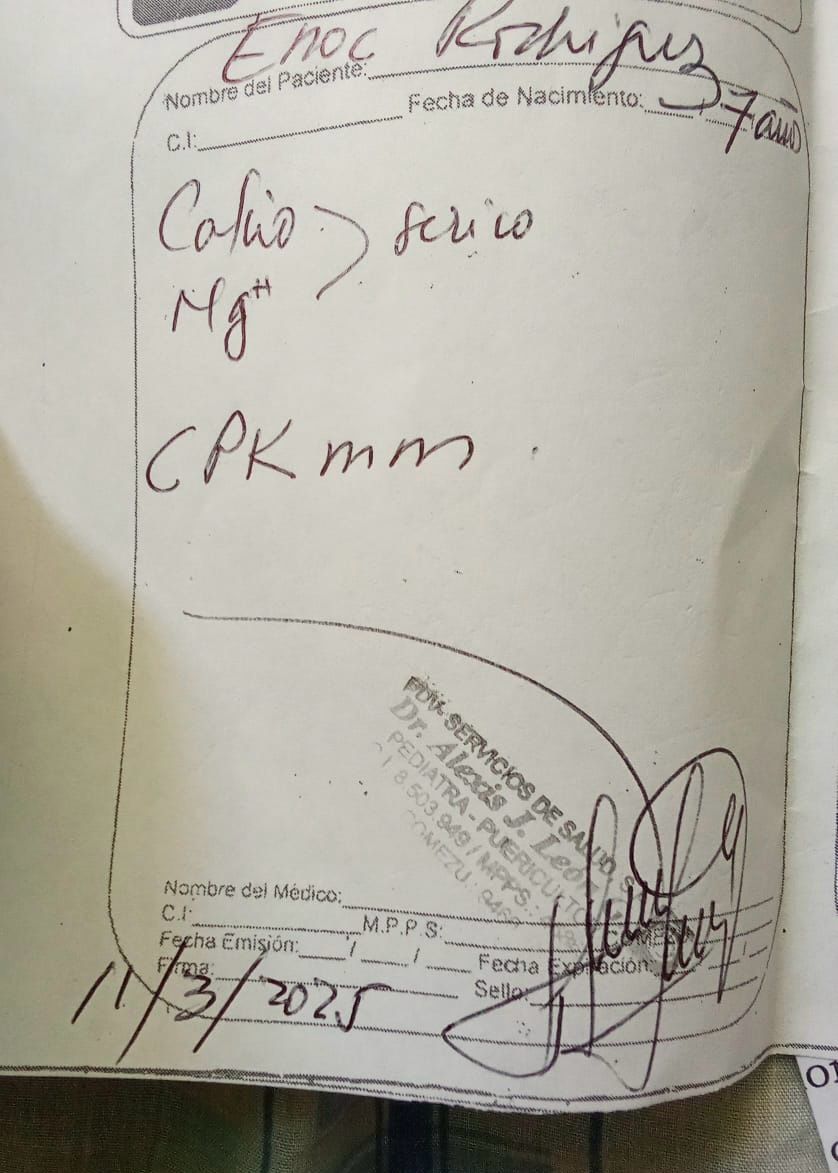 Enoc Rodriguez
Nombre del Paciente:
Fecha de Nacimiento: 7 años
C.I:
Calcio } serico
Mg++
CPK mm.
PDV- SERVICIOS DE SALUD, S
Dr. Alexis J. León
PEDIATRA - PUERICULTO
C.I 8.503.949 / MPPS.:
COMEZU: 946
Nombre del Médico:
C.I: M.P.P.S:
Fecha Emisión: / / Fecha Expiración:
Firma: Sello:
11/3/2025